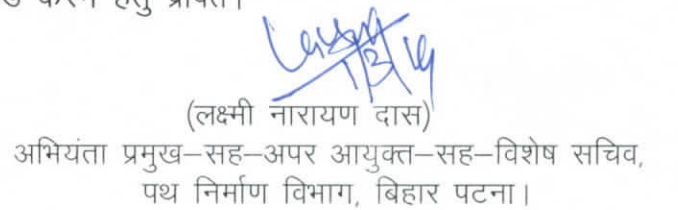 करने हेतु प्रेषित।
(लक्ष्मी नारायण दास)
अभियंता प्रमुख–सह–अपर आयुक्त–सह–विशेष सचिव,
पथ निर्माण विभाग, बिहार पटना।